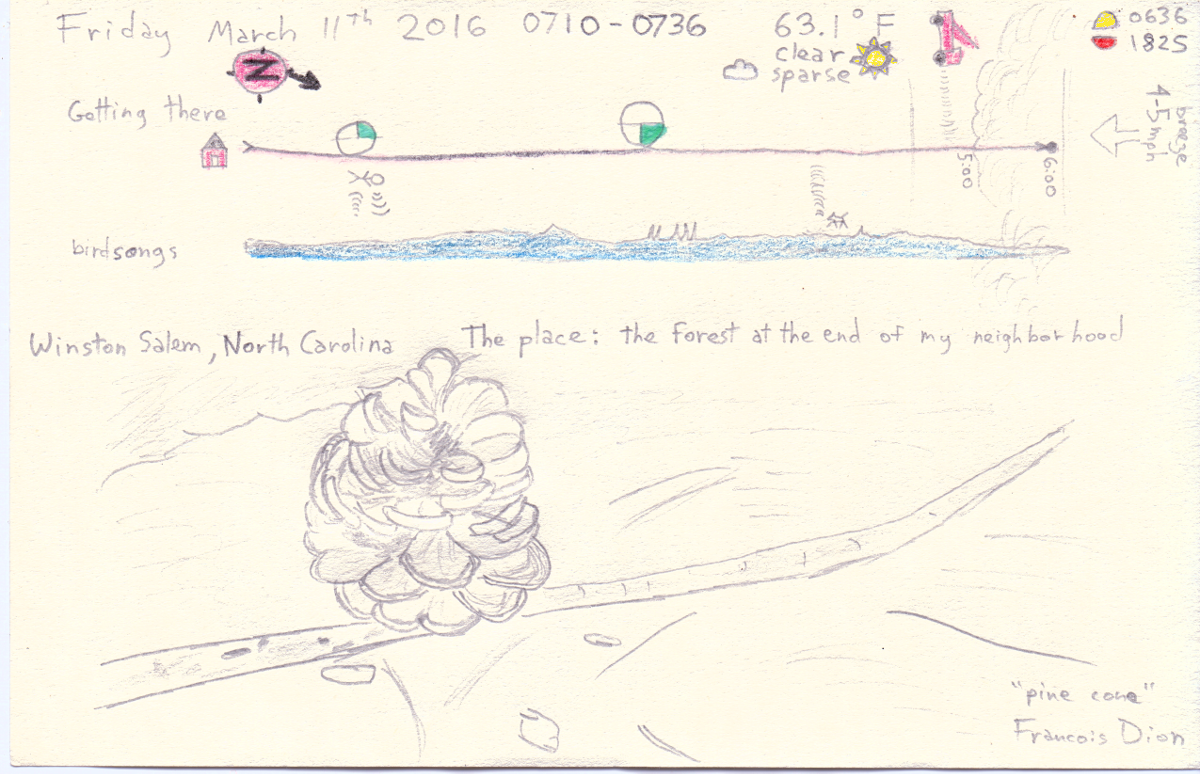 Friday March 11th 2016 0710-0736 63.1° F
clear
sparse
0636
1825
N
Getting there
breeze
4-5mph
5:00
6:00
birdsongs
Winston Salem, North Carolina
The place: the forest at the end of my neighborhood
"pine cone"
Francois Dion